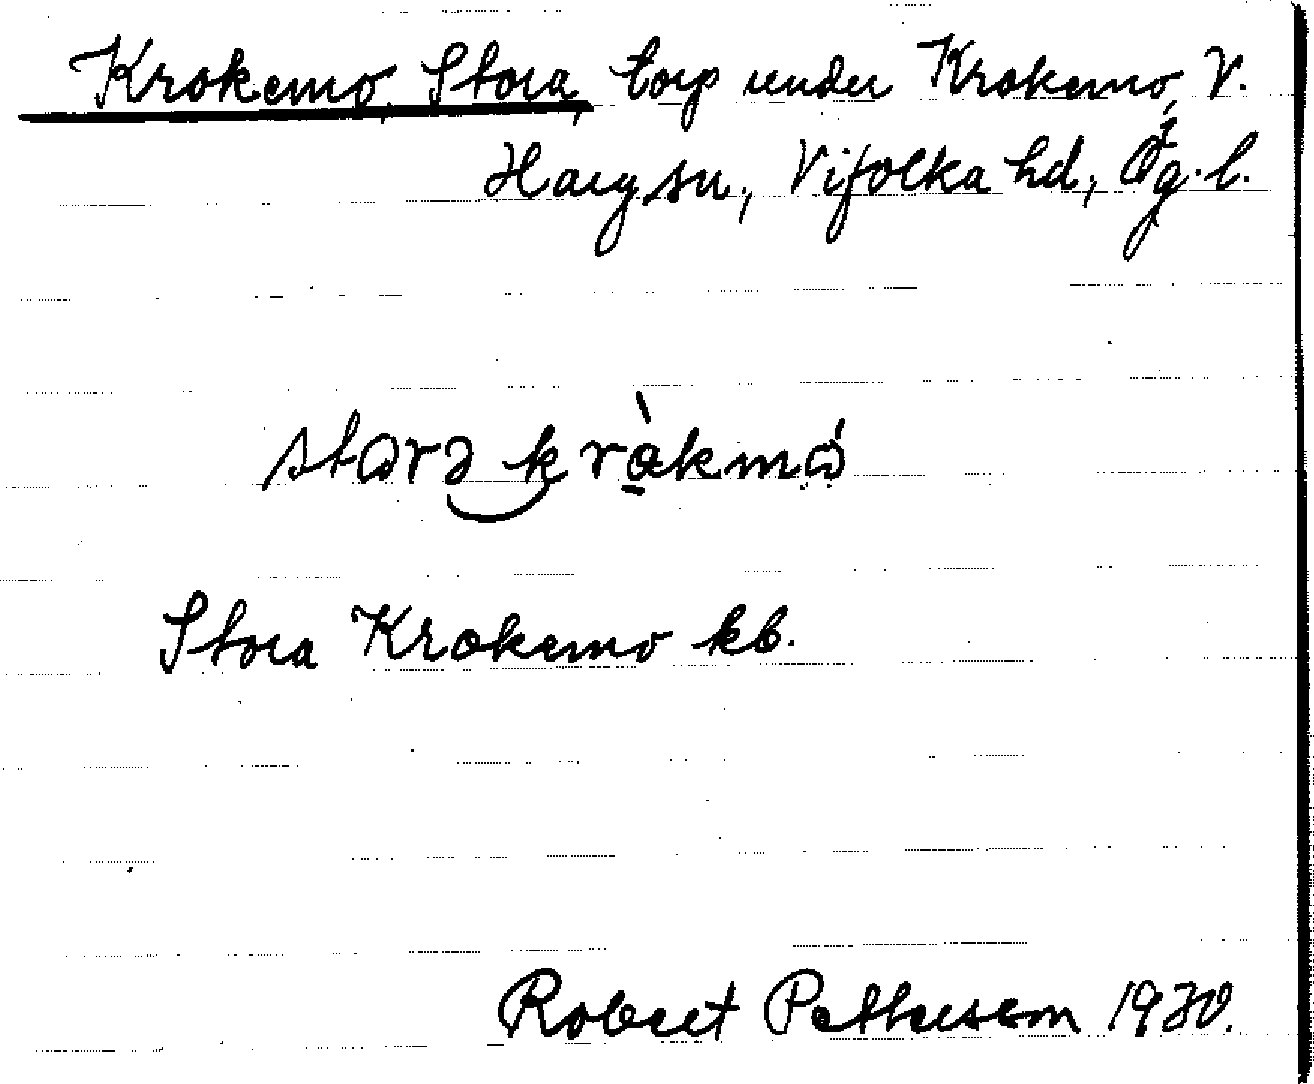 Krokemo, Stora, torp under Krokemo, V.
Harg sn, Vifolka hd, Ög. l.
Stora Krokemo kb.
Robert Pettersson 1930.